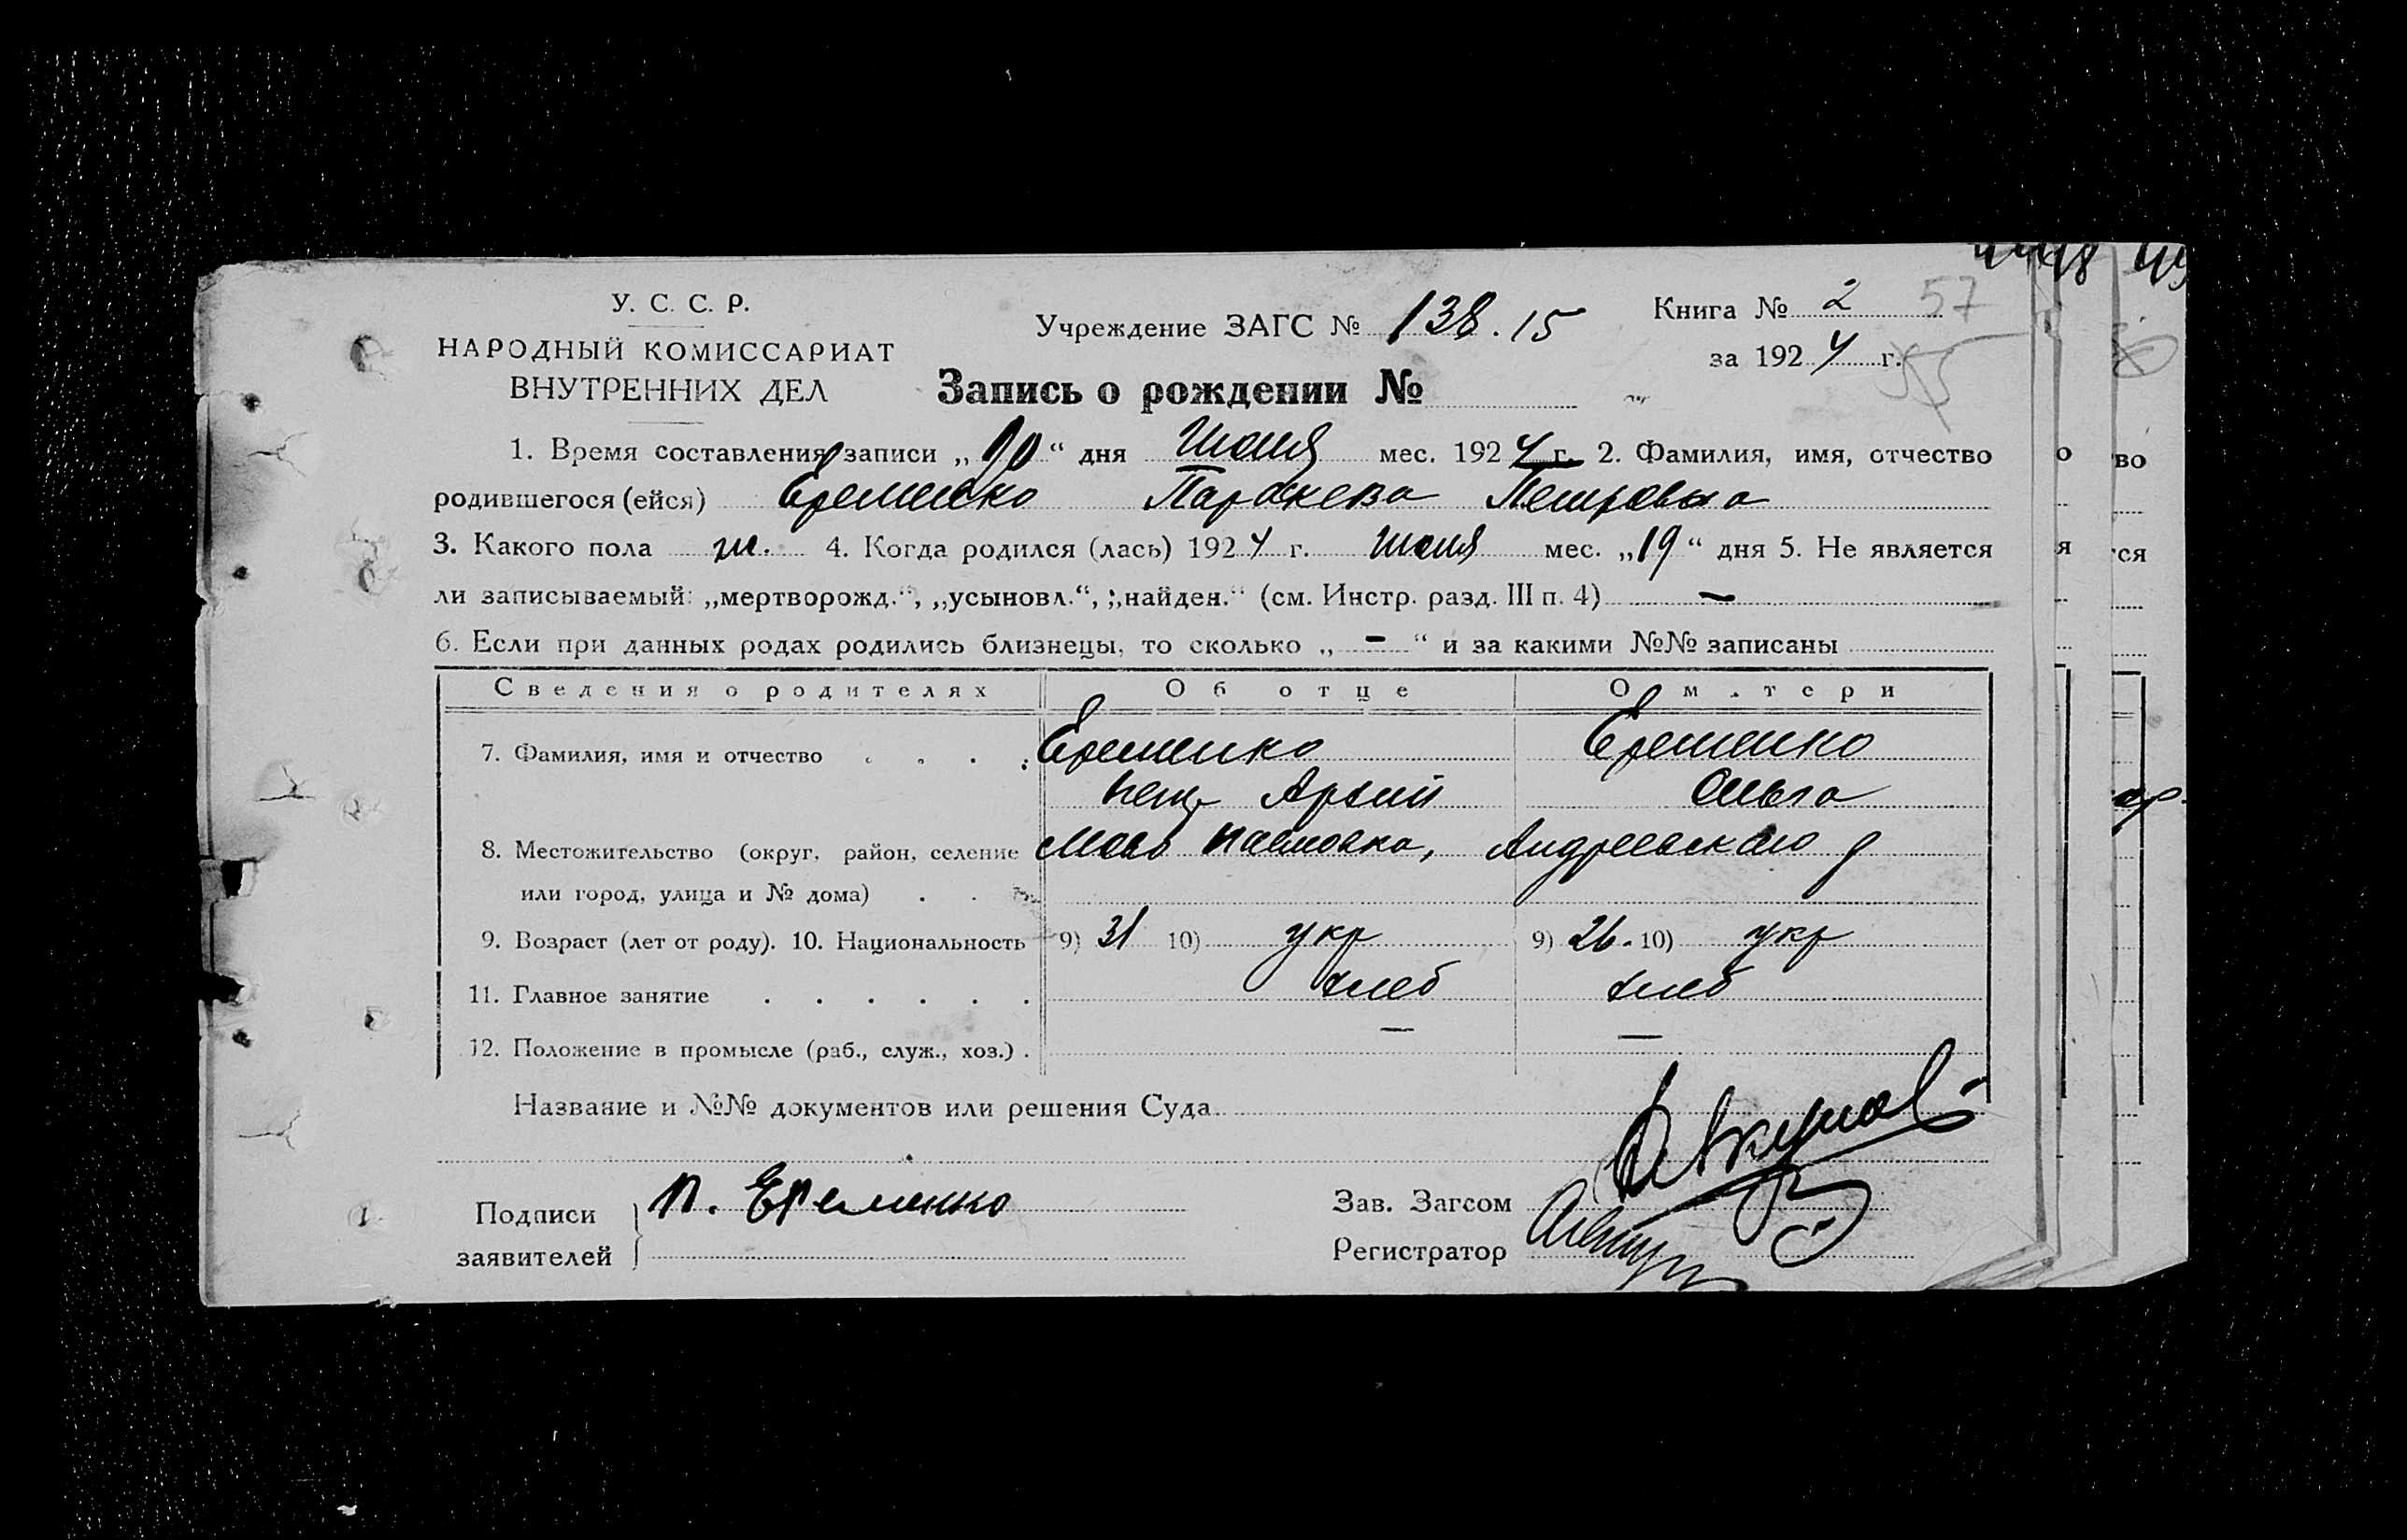 У. С. С. Р.
НАРОДНЫЙ КОМИССАРИАТ
ВНУТРЕННИХ ДЕЛ
Учреждение ЗАГС № 138.15
Книга № 2 57
за 1924 г.
Запись о рождении №
1. Время составления записи „ “ дня мес. 1924 г. 2. Фамилия, имя, отчество
родившегося (ейся) Еременко Параскева Петровна
3. Какого пола ж. 4. Когда родился (лась) 1924 г. мес. „19“ дня 5. Не является
ли записываемый: „мертворожд.“, „усыновл.“, „найден.“ (см. Инстр. разд. III п. 4) —
6. Если при данных родах родились близнецы, то сколько „ — “ и за какими №№ записаны
Сведения о родителях Об отце О м тери
7. Фамилия, имя и отчество Еременко Еременко
Петр Ольга
8. Местожительство (округ, район, селение Андреевского р
или город, улица и № дома)
9. Возраст (лет от роду). 10. Национальность 9) 31 10) укр 9) 26. 10) укр
11. Главное занятие хлеб хлеб
12. Положение в промысле (раб., служ., хоз.) — —
Название и №№ документов или решения Суда
Подписи П. Еременко Зав. Загсом
заявителей Регистратор